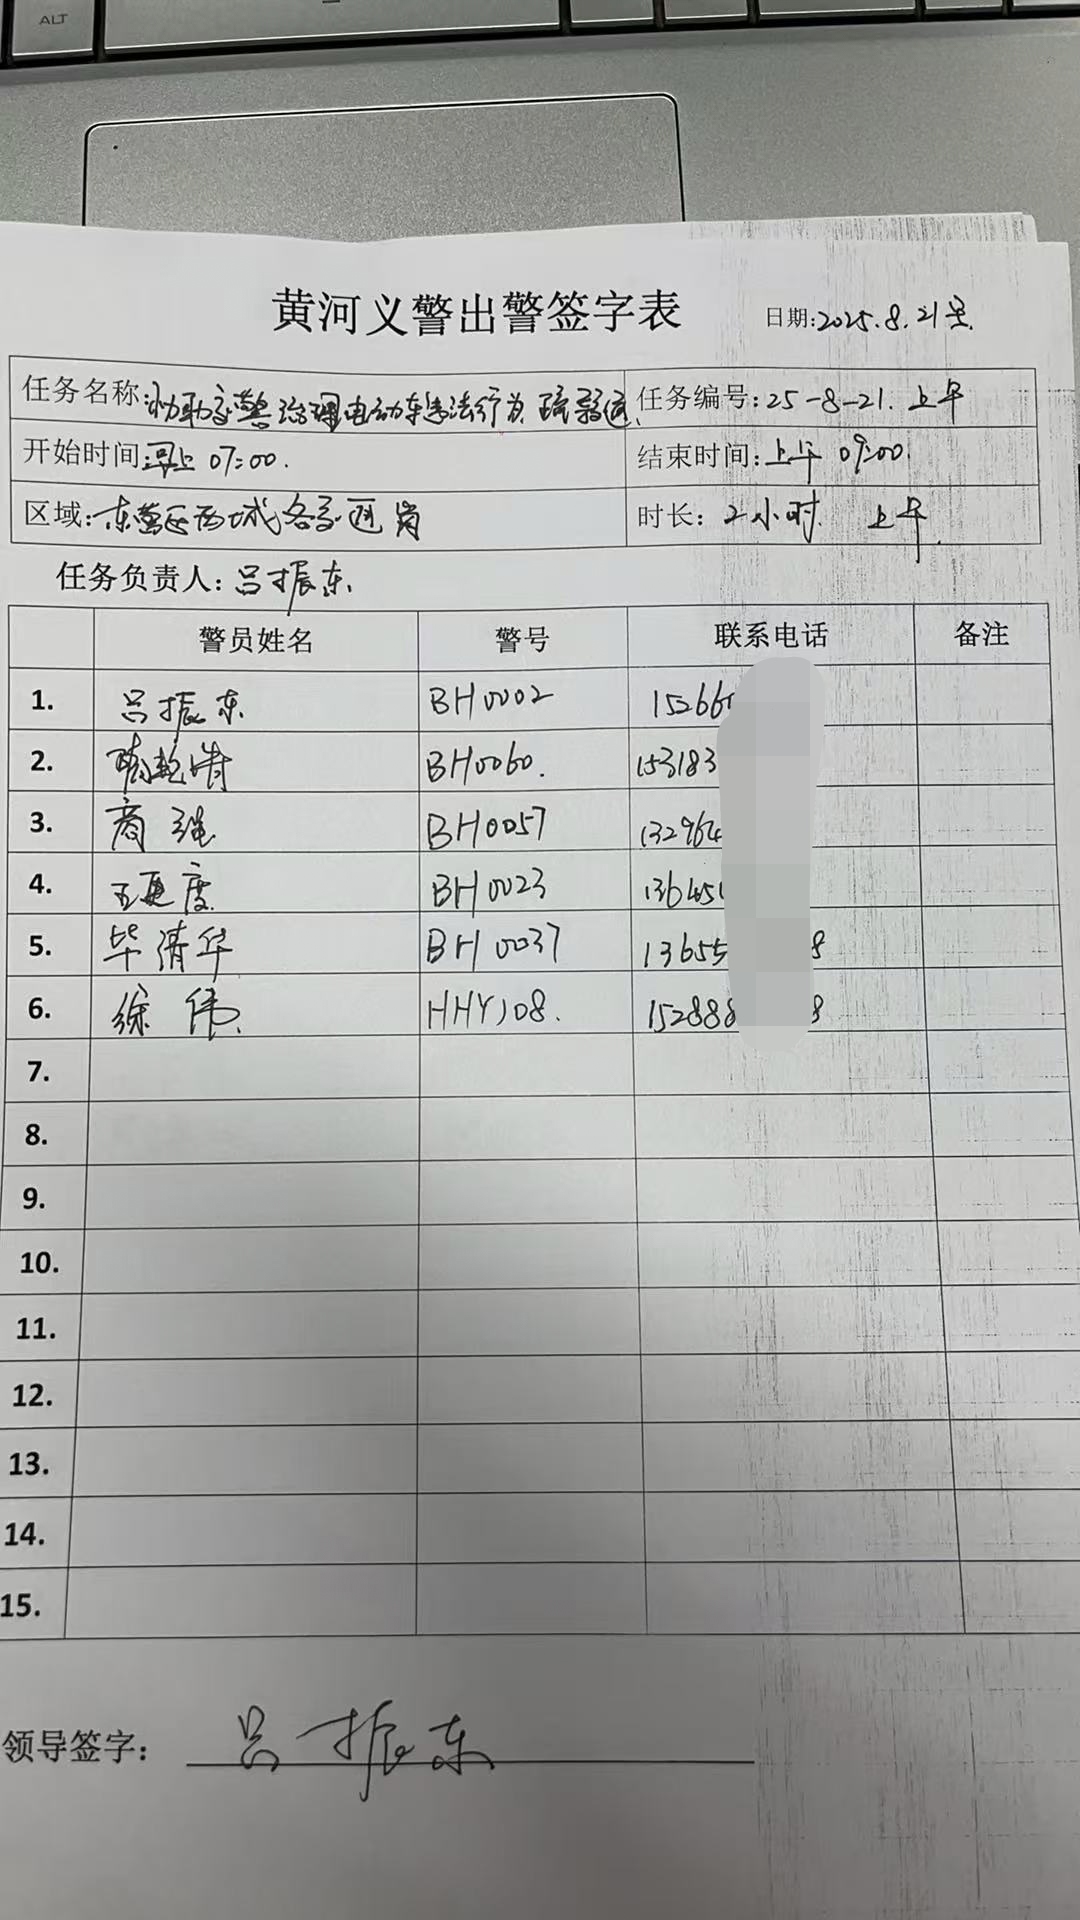 ALT
黄河义警出警签字表
日期:2025.8.21号.
任务名称:协助交警治理电动车违法行为.疏导交通.
任务编号:25-8-21.上午
开始时间:早上 07:00.
结束时间:上午 09:00.
区域:东营区西城各交通岗
时长:2小时. 上午.
任务负责人:吕振东
警员姓名 警号 联系电话 备注
1. 吕振东 BH0002 15266
2. BH0060. 153183
3. 商强 BH0057 132964
4. 王更度 BH0023 13645
5. 毕清华 BH0037 13655 8
6. 徐伟 HHY108. 152888 8
7.
8.
9.
10.
11.
12.
13.
14.
15.
领导签字: 吕振东